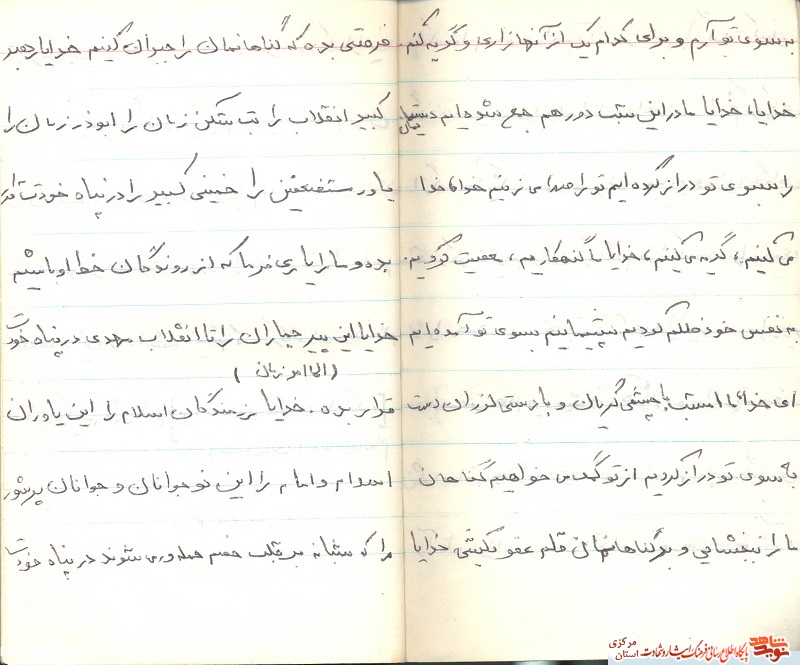 به سوی تو آرم و برای کدام یک از آنها زاری و گریه کنم.
خدایا، خدایا ما در این شب دور هم جمع شده‌ایم دستهایمان
را بسوی تو دراز کرده ایم تو را صدا می زنیم خدا خدا
می کنیم، گریه می کنیم، خدایا ما گنهکاریم، معصیت کردیم.
به نفس خود ظلم کردیم پشیمانیم بسوی تو آمده ایم
ای خدا ما امشب با چشمی گریان و با دستی لرزان دست
به سوی تو دراز کردیم از تو کمک می خواهیم گناهان
ما را ببخشایی و بر گناهانمان قلم عفو بکشی خدایا
فرصتی بده که گناهانمان را جبران کنیم خدایا رهبر
کبیر انقلاب را بت شکن زمان را ابوذر زمان را
یاور مستضعفین را خمینی کبیر را در پناه خودت قرار
بده و ما را یاری فرما که از روندگان خط او باشیم
خدایا این پیر جماران را تا انقلاب مهدی در پناه خودت
(امام زمان)
قرار بده. خدایا رزمندگان اسلام را این یاوران
اسلام و امام را این نوجوانان و جوانان پرشور
را که شبانه بر قلب خصم حمله ور می شوند در پناه خودت
نوید شاهد
پایگاه اطلاع رسانی فرهنگ ایثار و شهادت
استان مرکزی